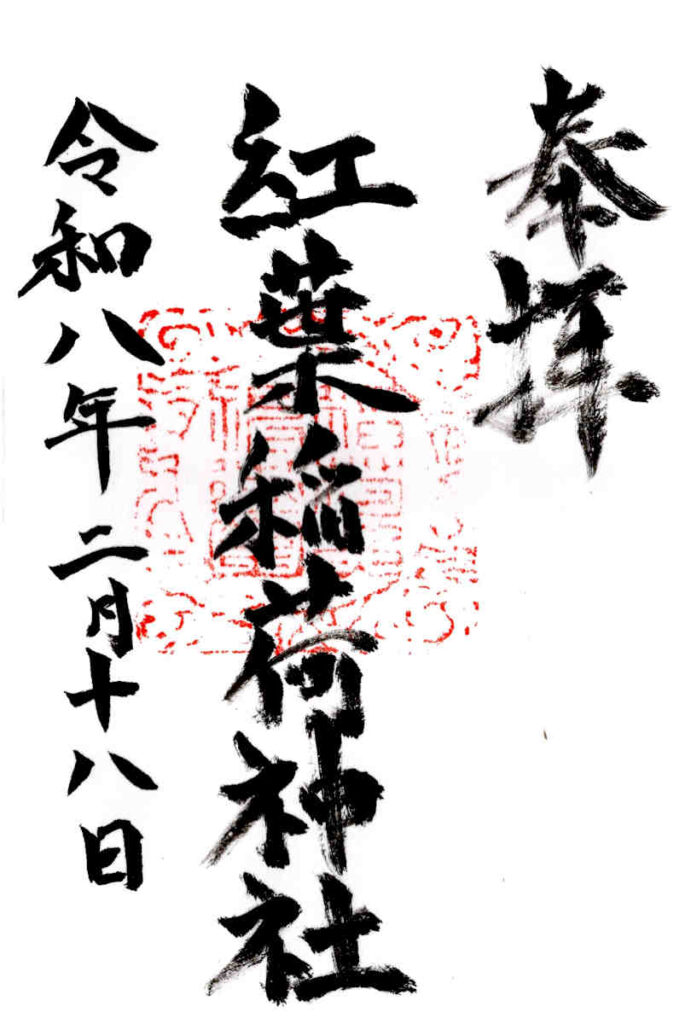 奉拝
紅葉稲荷神社
令和八年二月十八日